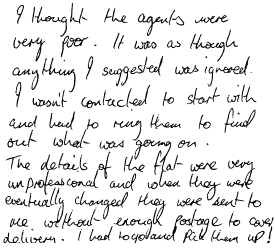 I thought the agents were
very poor. It was as though
anything I suggested was ignored.
I wasn't contacted to start with
and had to ring them to find
out what was going on.
The details of the flat were very
unprofessional and when they were
eventually changed they were sent to
me without enough postage to cover
delivery. I had to go and pick them up!